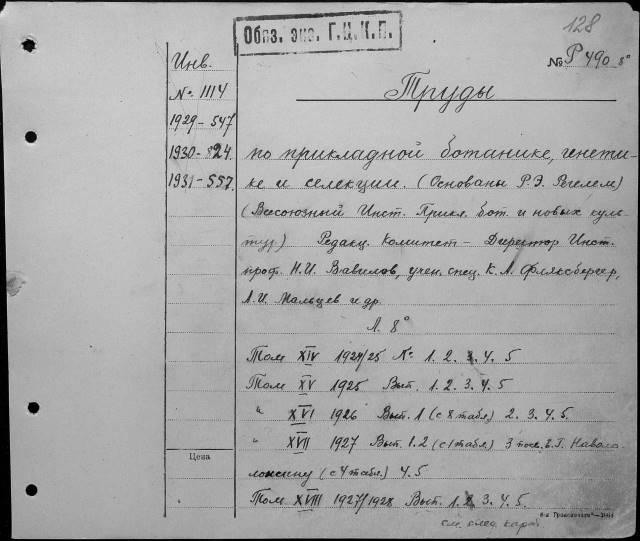 128
Обяз. экз. Г.Ц.К.П.
№ Р 490 8°
Инв.
№ 1114
1929 - 547
1930 - 524.
1931 - 557.
Труды
по прикладной ботанике, генети-
ке и селекции. (Основаны Р.Э. Регелем)
(Всесоюзный Инст. Прикл. бот. и новых куль-
тур.) Редакц. Комитет - Директор Инст.
проф. Н.И. Вавилов, учен. спец. К.А. Фляксбергер,
А.И. Мальцев и др.
Л. 8°
Том XIV 1924/25 № 1. 2. 3. 4. 5
Том XV 1925 Вып. 1. 2. 3. 4. 5
" XVI 1926 Вып. 1 (с 8 табл.) 2. 3. 4. 5.
" XVII 1927 Вып. 1. 2 (с 1 табл.) 3 посв. Е.Г. Навало-
локину (с 4 табл.) 4. 5
Том XVIII 1927/1928 Вып. 1. 2. 3. 4. 5.
Цена
см. след. карт.